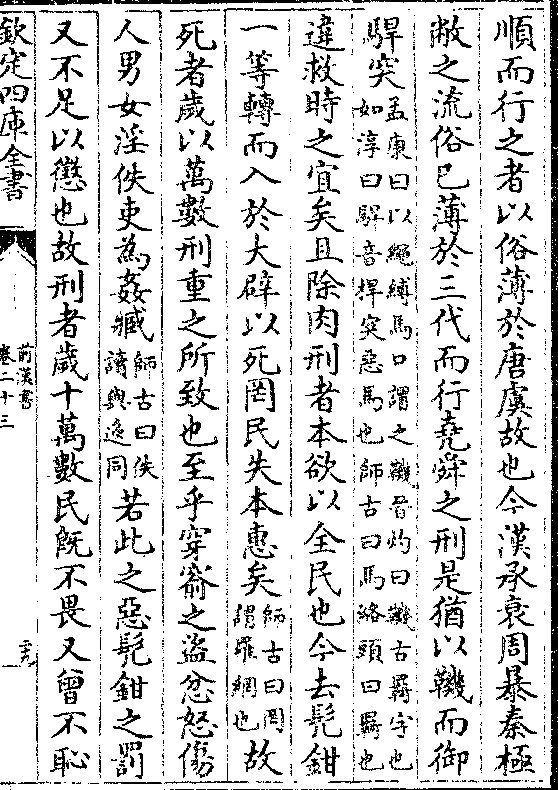 順而行之者以俗薄於唐虞故也今漢承衰周暴秦極
敝之流俗已薄於三代而行堯舜之刑是猶以鞿而御
駻突孟康曰以繩縛馬口謂之鞿晉灼曰鞿古羈字也如淳曰駻音捍突惡馬也師古曰馬絡頭曰羈也
違救時之宜矣且除肉刑者本欲以全民也今去髡鉗
一等轉而入於大辟以死罔民失本惠矣師古曰罔謂羅網也故
死者歲以萬數刑重之所致也至乎穿窬之盜忿怒傷
人男女淫佚吏為姦臧師古曰佚讀與逸同若此之惡髡鉗之罰
又不足以懲也故刑者歲十萬數民既不畏又曾不恥
欽定四庫全書
前漢書
卷二十三